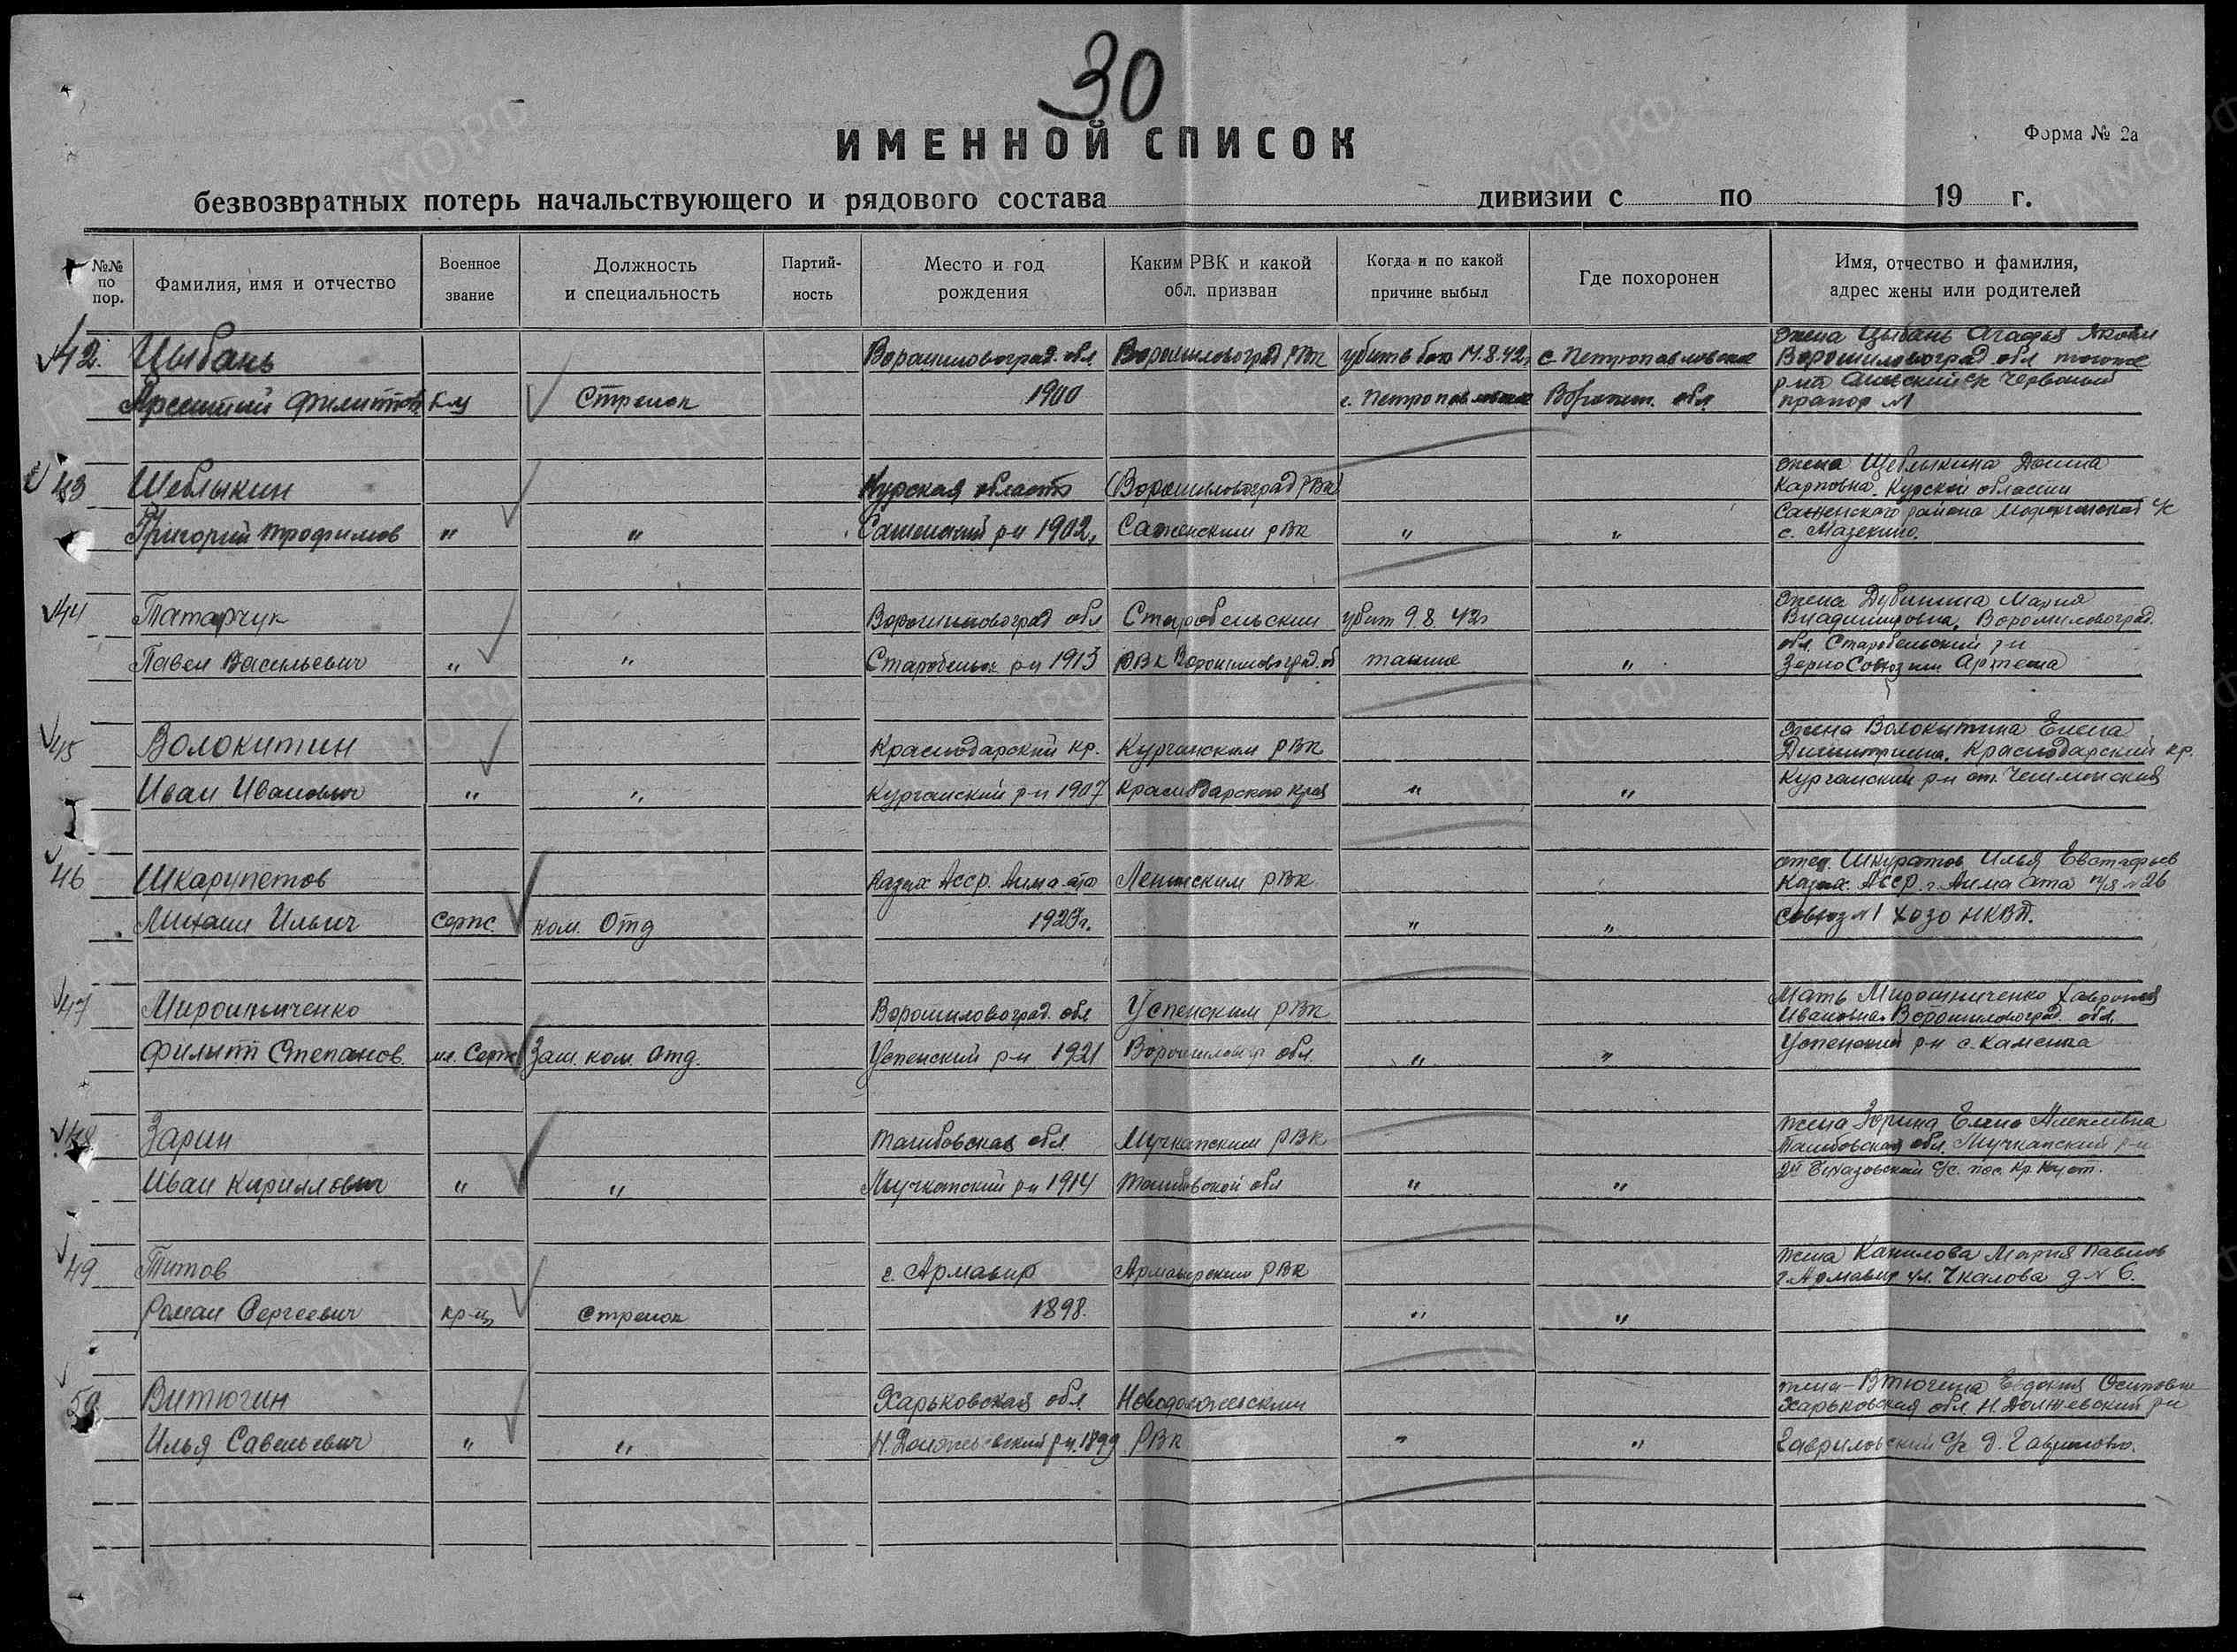 30
ИМЕННОЙ СПИСОК
Форма № 2а
безвозвратных потерь начальствующего и рядового состава дивизии с по 19 г.
№№ по пор.
Фамилия, имя и отчество
Военное звание
Должность и специальность
Партий-ность
Место и год рождения
Каким РВК и какой обл. призван
Когда и по какой причине выбыл
Где похоронен
Имя, отчество и фамилия, адрес жены или родителей
42. Цыбань Ворошиловоград. обл. Ворошиловоград РВК убит в бою 14.8.42г. с. Петропавловское
жена Цыбань Агафья Яковл
Ворошиловоград обл
Арсентий Филиппов к-ц Стрелок 1900 с. Петропавловское Воронеж. обл.
р-на с/с Червоный
прапор №1
43 Шеблыкин Курская область (Ворошиловоград РВК)
жена Щеблыкина Домна
Карповна. Курской области
Григорий Трофимов " " 1902г. РВК " "
района с/с
с. Мазекино.
44 Татарчук Ворошиловоград обл Старобельским убит 9.8.42г
жена Дубинина Мария
Владимировна, Ворошиловоград.
Павел Васильевич " " Старобельск р-н 1913 РВК Ворошиловград. об также "
обл. Старобельский р-н
Артема
45 Волокитин Краснодарский кр. Курганским РВК
жена Волокитина Елена
Дмитриевна. Краснодарский кр.
Иван Иванович " " Курганский р-н 1907 Краснодарского края " "
Курганский р-н ст.
46 Шкарупетов Казах Асср. Алма ата Ленинским РВК
отец. Шкуратов Илья Евстафьев
Казах. Асср. г. Алма Ата п/я №26
Михаил Ильич Серж. ком. Отд 1923г. " "
совхоз №1 ХОЗО НКВД.
47 Мирошниченко Ворошиловоград. обл Успенским РВК
Мать Мирошниченко Хаврония
Ивановна. Ворошиловоград. обл.
Филипп Степанов. мл. Серж Зам. ком. Отд. Успенский р-н 1921 обл. " "
Успенский р-н с. Каменка
48 Зарин Тамбовская обл Мучкапским РВК
жена Зарина Елена Алексеевна
Тамбовская обл. Мучкапский р-н
Иван Кириллович " " Мучкапский р-н 1914 Тамбовской обл " "
2й с/с. пос. Кр. Куст.
49 Титов г. Армавир Армавирским РВК
жена Канилова Мария Павлов
г. Армавир ул. Чкалова д № 6.
Роман Сергеевич кр-ц Стрелок 1898. " "
50 Витюгин Харьковская обл. Новодолжевским
жена - Втюгина Евдокия Осиповна
Харьковская обл. Н. Должевский р-н
Илья Савельевич " " р-н. 1899 РВК " "
Гавриловский с/с д. Гавриловка.